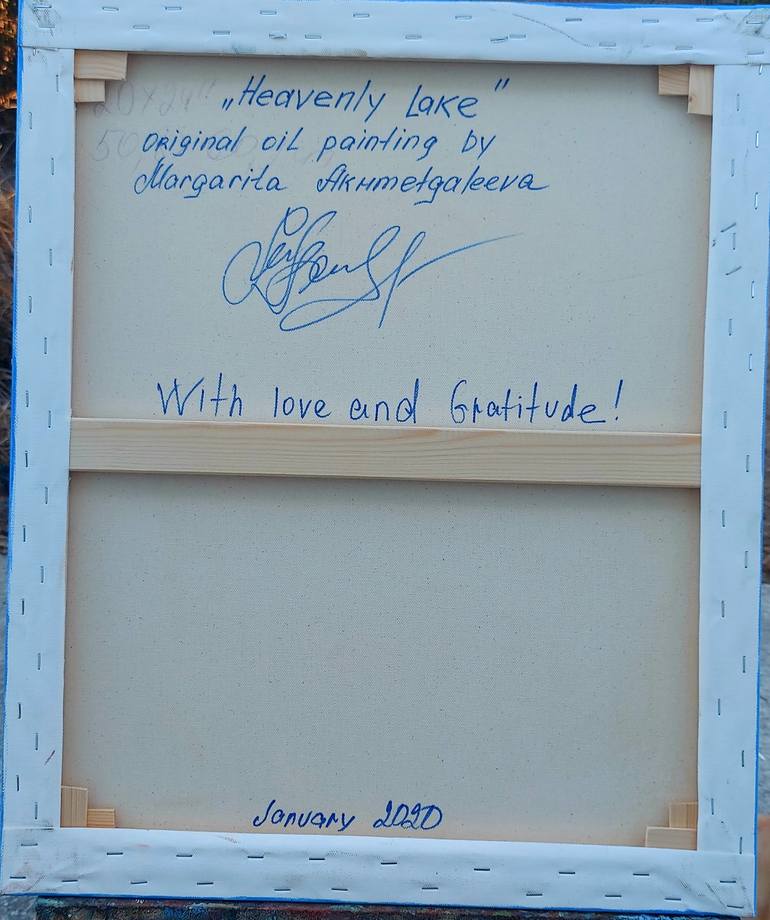 20x24"
„Heavenly Lake"
original oil painting by
Margarita Akhmetgaleeva
With love and Gratitude!
January 2020